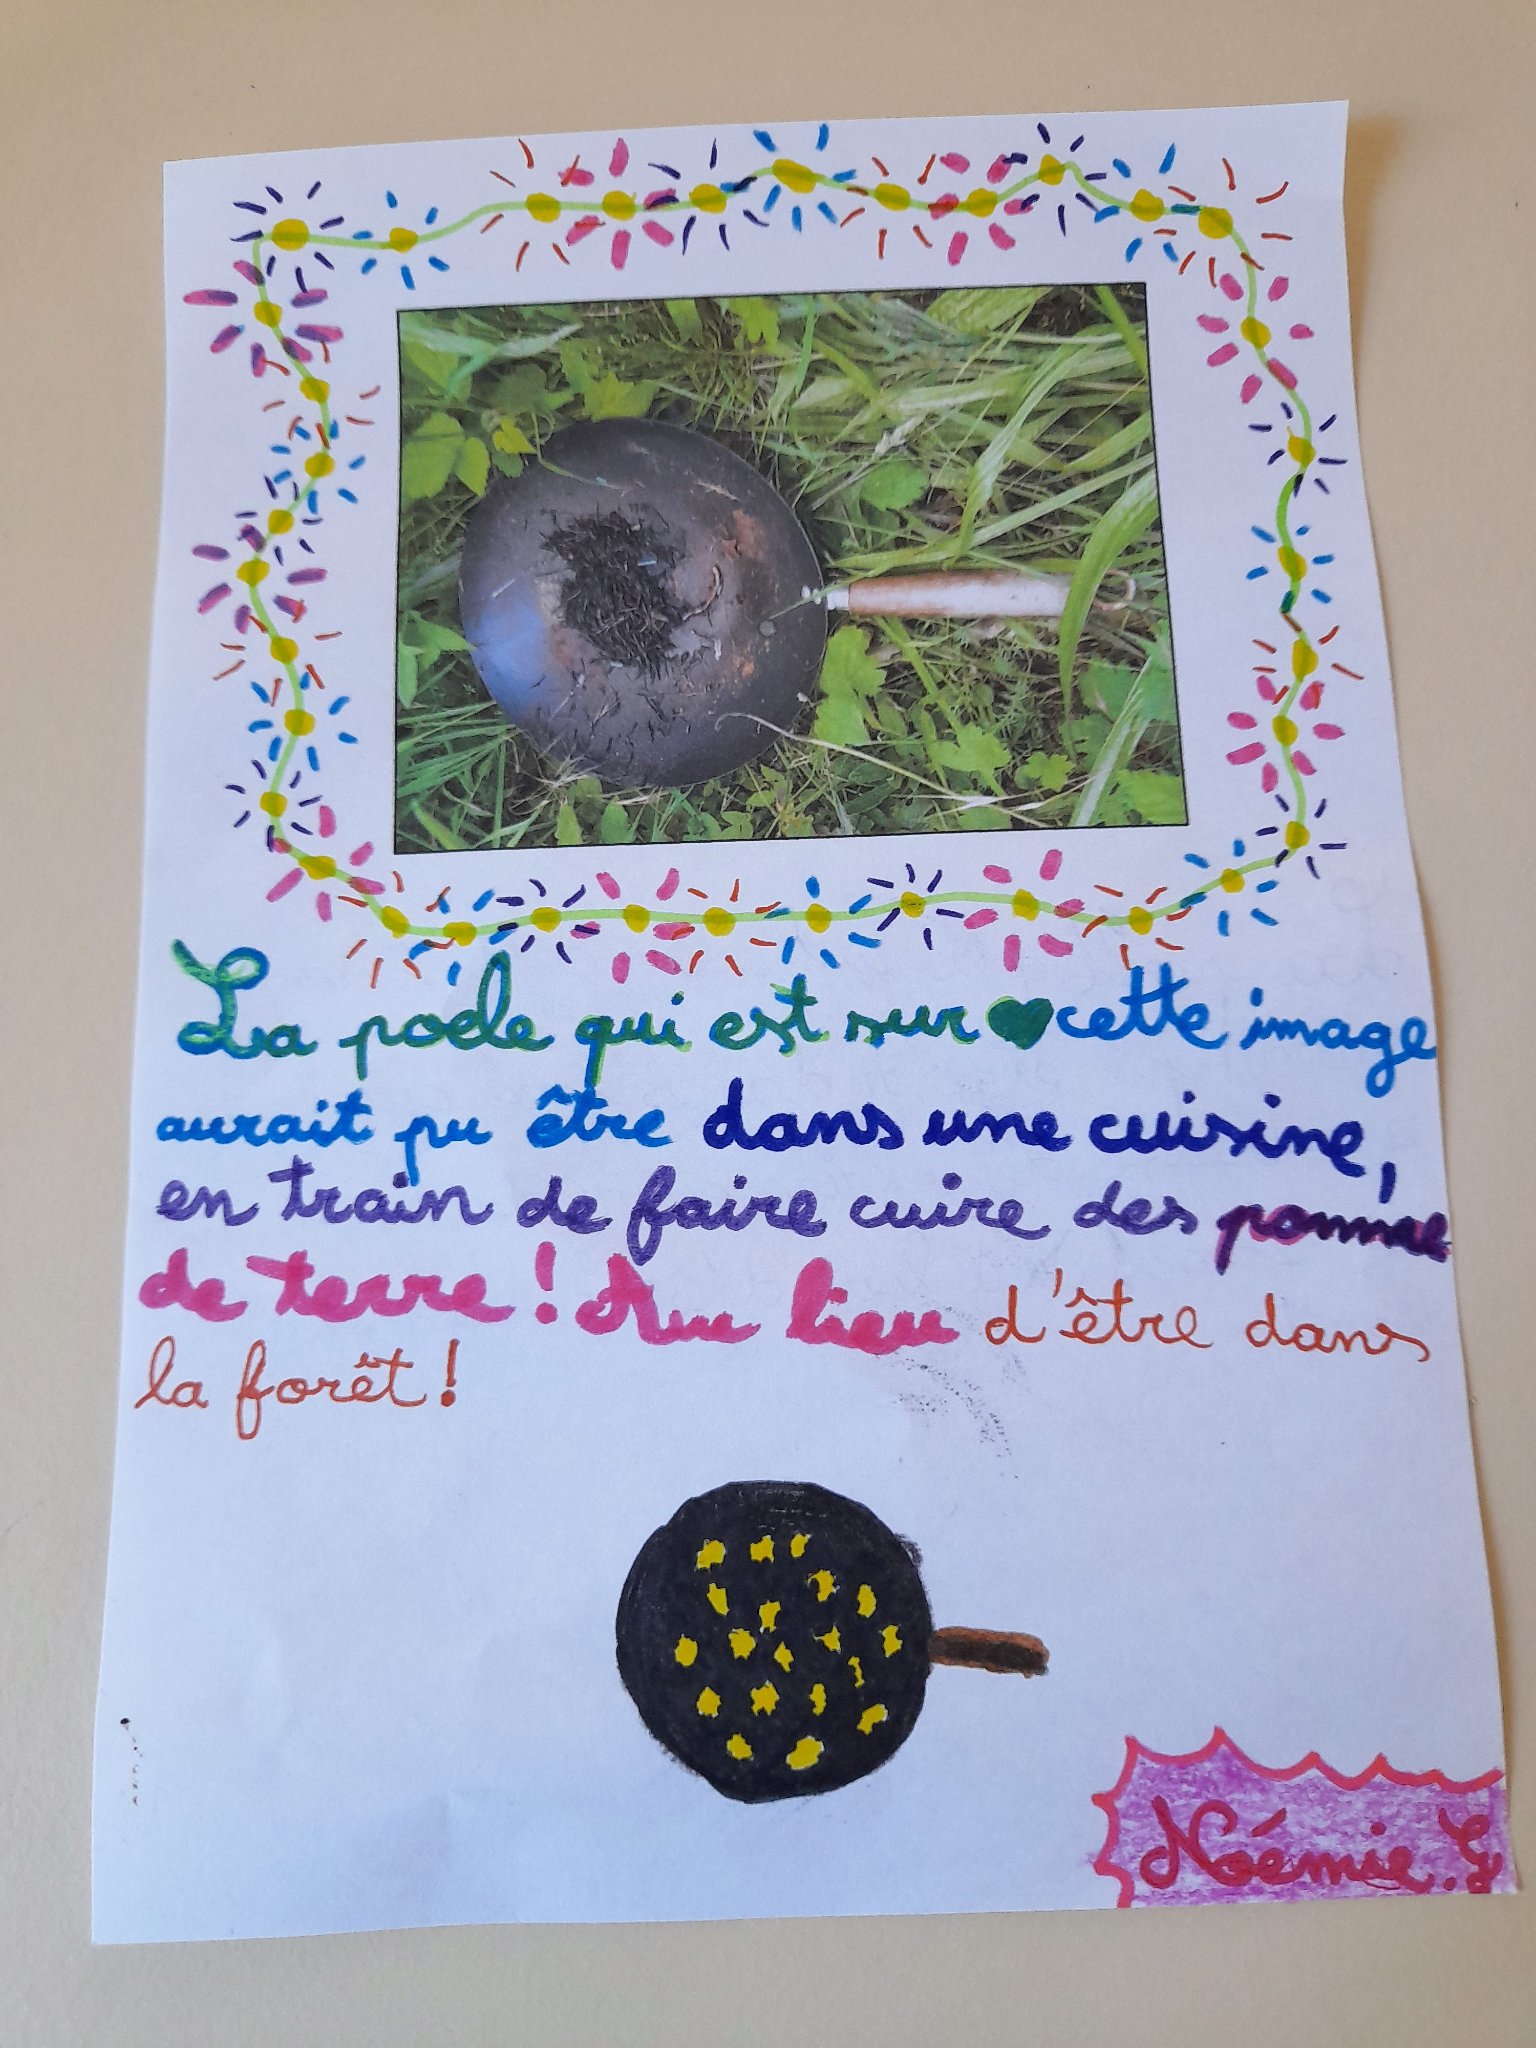 La poêle qui est sur cette image
aurait pu être dans une cuisine,
en train de faire cuire des pommes
de terre ! Au lieu d'être dans
la forêt !
Noémie.G